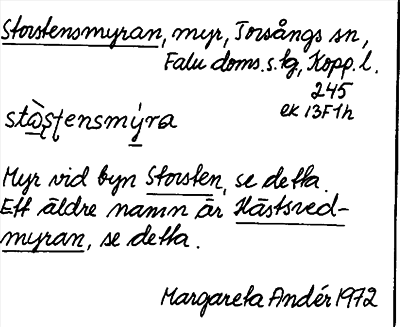 Storstensmyran, myr, Torsångs sn,
Falu doms.s.tg, Kopp.l.
245
ek 13F1h
stå̀s̨tensmýra
Myr vid byn Storsten, se detta.
Ett äldre namn är Hästsved-
myran, se detta.
Margareta Andér 1972